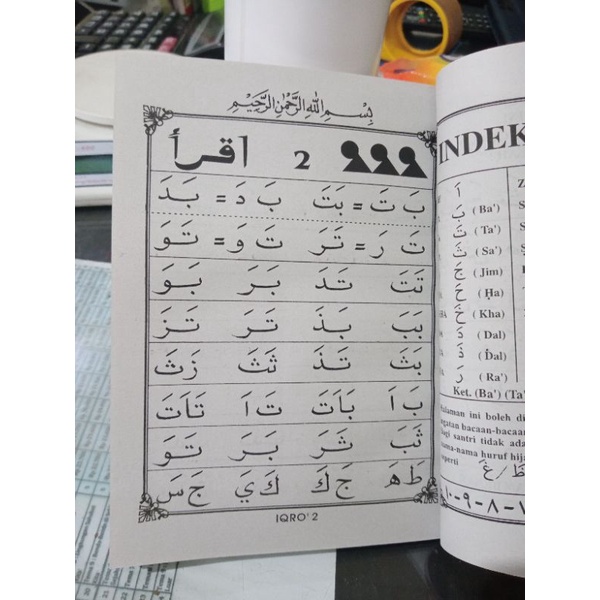 بِسْمِ اللهِ الرَّحْمٰنِ الرَّحِيْمِ
2 اقرأ
بَ تَ = بَتَ بَ دَ = بَدَ
تَ رَ = تَرَ تَ وَ = تَوَ
تَتَ تَدَ بَرَ بَوَ
بَبَ بَذَ تَرَ تَزَ
بَثَ تَذَ ثَثَ زَثَ
بَ اَ بَاَتَ تَ اَ تَاَتَ
ثَبَ ثَرَ بَرَ تَوَ
طَ هَ جَ كَ كَ يَ جَ سَ
IQRO' 2
INDEK
اَ
بَ (Ba')
تَ (Ta')
ثَ (Sa')
جَ (Jim)
حَ (Ḥa)
خَ (Kha)
دَ (Dal)
ذَ (Ḋal)
رَ (Ra')
Ket. (Ba') (Ta'
ini boleh di
bacaan-bacaan
santri tidak ada
nama-nama huruf hija
ظَ / غَ
١٠-٩-٨-٧